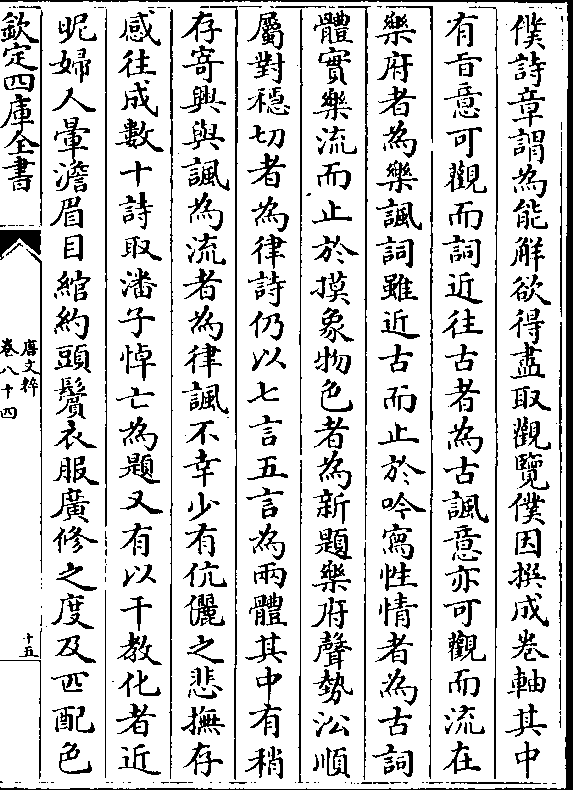 僕詩章謂為能解欲得盡取觀覽僕因撰成卷軸其中
有㫖意可觀而詞近往古者為古諷意亦可觀而流在
樂府者為樂諷詞雖近古而止於吟寫性情者為古詞
體實樂流而止於摸象物色者為新題樂府聲勢沿順
屬對穩切者為律詩仍以七言五言為兩體其中有稍
存寄興與諷為流者為律諷不幸少有伉儷之悲撫存
感往成數十詩取潘子悼亡為題又有以干教化者近
昵婦人暈澹眉目綰約頭鬢衣服廣修之度及匹配色
欽定四庫全書
唐文粹
卷八十四
十五